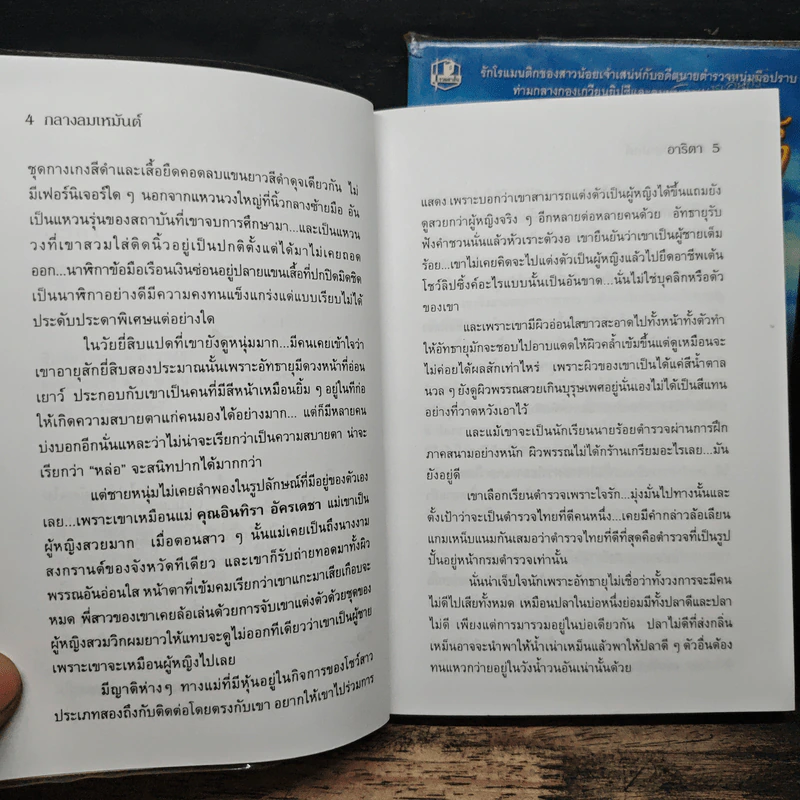 4 กลางลมเหมันต์
ชุดกางเกงสีดำและเสื้อยืดคอตลบแขนยาวสีดำดุจเดียวกัน ไม่
มีเฟอร์นิเจอร์ใด ๆ นอกจากแหวนวงใหญ่ที่นิ้วกลางซ้ายมือ อัน
เป็นแหวนรุ่นของสถาบันที่เขาจบการศึกษามา...และเป็นแหวน
วงที่เขาสวมใส่ติดนิ้วอยู่เป็นปกติตั้งแต่ได้มาไม่เคยถอด
ออก...นาฬิกาข้อมือเรือนเงินซ่อนอยู่ปลายแขนเสื้อที่ปกปิดมิดชิด
เป็นนาฬิกาอย่างดีมีความคงทนแข็งแกร่งแต่แบบเรียบไม่ได้
ประดับประดาพิเศษแต่อย่างใด
ในวัยยี่สิบแปดที่เขายังดูหนุ่มมาก...มีคนเคยเข้าใจว่า
เขาอายุสักยี่สิบสองประมาณนั้นเพราะอัทธายุมีดวงหน้าที่อ่อน
เยาว์ ประกอบกับเขาเป็นคนที่มีสีหน้าเหมือนยิ้ม ๆ อยู่ในทีก่อ
ให้เกิดความสบายตาแก่คนมองได้อย่างมาก... แต่ก็มีหลายคน
บ่งบอกอีกนั่นแหละว่าไม่น่าจะเรียกว่าเป็นความสบายตา น่าจะ
เรียกว่า "หล่อ" จะสนิทปากได้มากกว่า
แต่ชายหนุ่มไม่เคยลำพองในรูปลักษณ์ที่มีอยู่ของตัวเอง
เลย...เพราะเขาเหมือนแม่ คุณอินทิรา อัครเดชา แม่เขาเป็น
ผู้หญิงสวยมาก เมื่อตอนสาว ๆ นั้นแม่เคยเป็นถึงนางงาม
สงกรานต์ของจังหวัดทีเดียว และเขาก็รับถ่ายทอดมาทั้งผิว
พรรณอันอ่อนใส หน้าตาที่เข้มคมเรียกว่าเขาแกะมาเสียเกือบจะ
หมด พี่สาวของเขาเคยล้อเล่นด้วยการจับเขาแต่งตัวด้วยชุดของ
ผู้หญิงสวมวิกผมยาวให้แทบจะดูไม่ออกทีเดียวว่าเขาเป็นผู้ชาย
เพราะเขาจะเหมือนผู้หญิงไปเลย
มีญาติห่าง ๆ ทางแม่ที่มีหุ้นอยู่ในกิจการของโชว์สาว
ประเภทสองถึงกับติดต่อโดยตรงกับเขา อยากให้เขาไปร่วมการ
รักโรแมนติกของสาวน้อยเจ้าเสน่ห์กับอดีตนายตำรวจหนุ่มมือปราบ
อาริตา 5
แสดง เพราะบอกว่าเขาสามารถแต่งตัวเป็นผู้หญิงได้ขึ้นแถมยัง
ดูสวยกว่าผู้หญิงจริง ๆ อีกหลายต่อหลายคนด้วย อัทธายุรับ
ฟังคำชวนนั่นแล้วหัวเราะตัวงอ เขายืนยันว่าเขาเป็นผู้ชายเต็ม
ร้อย...เขาไม่เคยคิดจะไปแต่งตัวเป็นผู้หญิงแล้วไปยึดอาชีพเต้น
โชว์ลิปซิ้งค์อะไรแบบนั้นเป็นอันขาด...นั่นไม่ใช่บุคลิกหรือตัว
ของเขา
และเพราะเขามีผิวอ่อนใสขาวสะอาดไปทั้งหน้าทั้งตัวทำ
ให้อัทธายุมักจะชอบไปอาบแดดให้ผิวคล้ำเข้มขึ้นแต่ดูเหมือนจะ
ไม่ค่อยได้ผลสักเท่าไหร่ เพราะผิวของเขาเป็นได้แค่สีน้ำตาล
นวล ๆ ยังดูผิวพรรณสวยเกินบุรุษเพศอยู่นั่นเองไม่ได้เป็นสีแทน
อย่างที่วาดหวังเอาไว้
และแม้เขาจะเป็นนักเรียนนายร้อยตำรวจผ่านการฝึก
ภาคสนามอย่างหนัก ผิวพรรณไม่ได้กร้านเกรียมอะไรเลย...มัน
ยังอยู่ดี
เขาเลือกเรียนตำรวจเพราะใจรัก...มุ่งมั่นไปทางนั้นและ
ตั้งเป้าว่าจะเป็นตำรวจไทยที่ดีคนหนึ่ง...เคยมีคำกล่าวล้อเลียน
แกมเหน็บแนมกันเสมอว่าตำรวจไทยที่ดีที่สุดคือตำรวจที่เป็นรูป
ปั้นอยู่หน้ากรมตำรวจเท่านั้น
นั่นน่าเจ็บใจนักเพราะอัทธายุไม่เชื่อว่าทั้งวงการจะมีคน
ไม่ดีไปเสียทั้งหมด เหมือนปลาในบ่อหนึ่งย่อมมีทั้งปลาดีและปลา
ไม่ดี เพียงแต่การมารวมอยู่ในบ่อเดียวกัน ปลาไม่ดีที่ส่งกลิ่น
เหม็นอาจจะนำพาให้น้ำเน่าเหม็นแล้วพาให้ปลาดี ๆ ตัวอื่นต้อง
ทนแหวกว่ายอยู่ในวังน้ำวนอันเน่านั้นด้วย